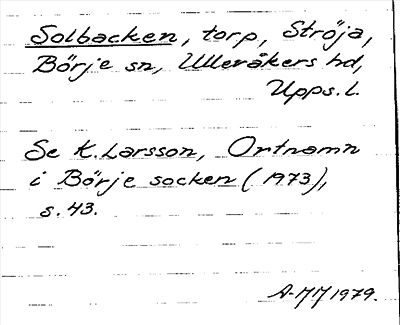 Solbacken, torp, Ströja,
Börje sn, Ulleråkers hd,
Upps. l.
Se K. Larsson, Ortnamn
i Börje socken (1973),
s. 43.
A-MM 1979.